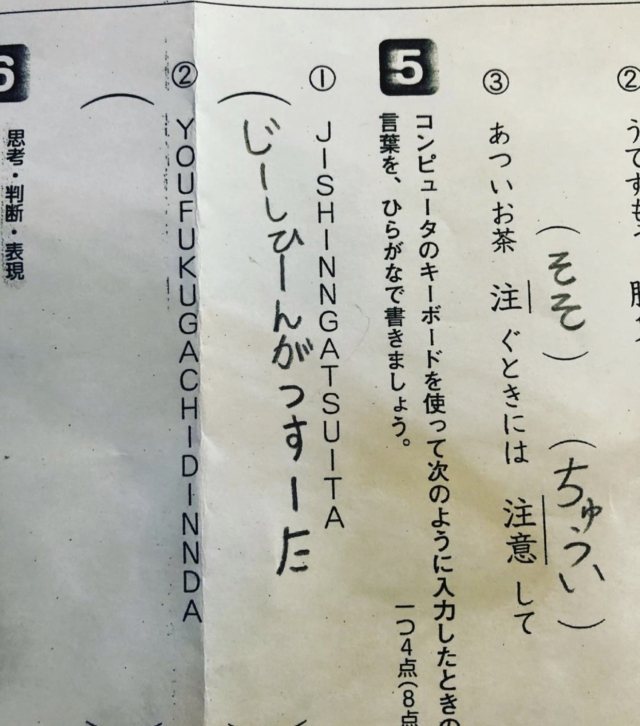 ②
③ あついお茶 注ぐときには 注意して
(そそ) (ちゅうい)
5 コンピュータのキーボードを使って次のように入力したときの
言葉を、ひらがなで書きましょう。 一つ4点(8点
① JISHINNGATSUITA
(じーしひーんがつすーた
② YOUFUKUGACHIDINNDA
(
6 思考・判断・表現